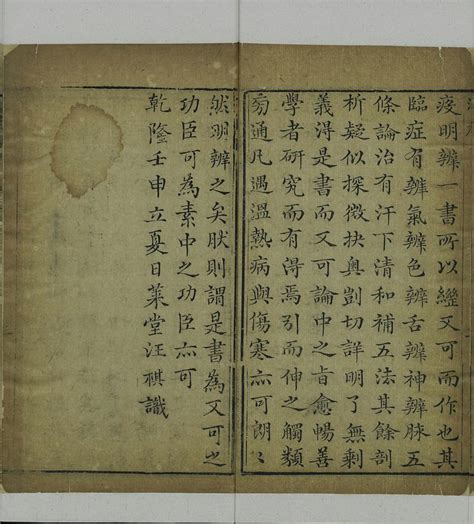 疫明辨一書所以繼又可而作也其
臨症有辨氣辨色辨舌辨神辨脉五
條論治有汗下清和補五法其餘剖
析疑似探微抉奧剴切詳明了無剩
義得是書而又可論中之旨愈暢善
學者研究而有得焉引而伸之觸類
旁通凡遇溫熱病與傷寒亦可朗〻
然明辨之矣肰則謂是書為又可之
功臣可為素中之功臣亦可
乾隆壬申立夏日葉堂汪祺識